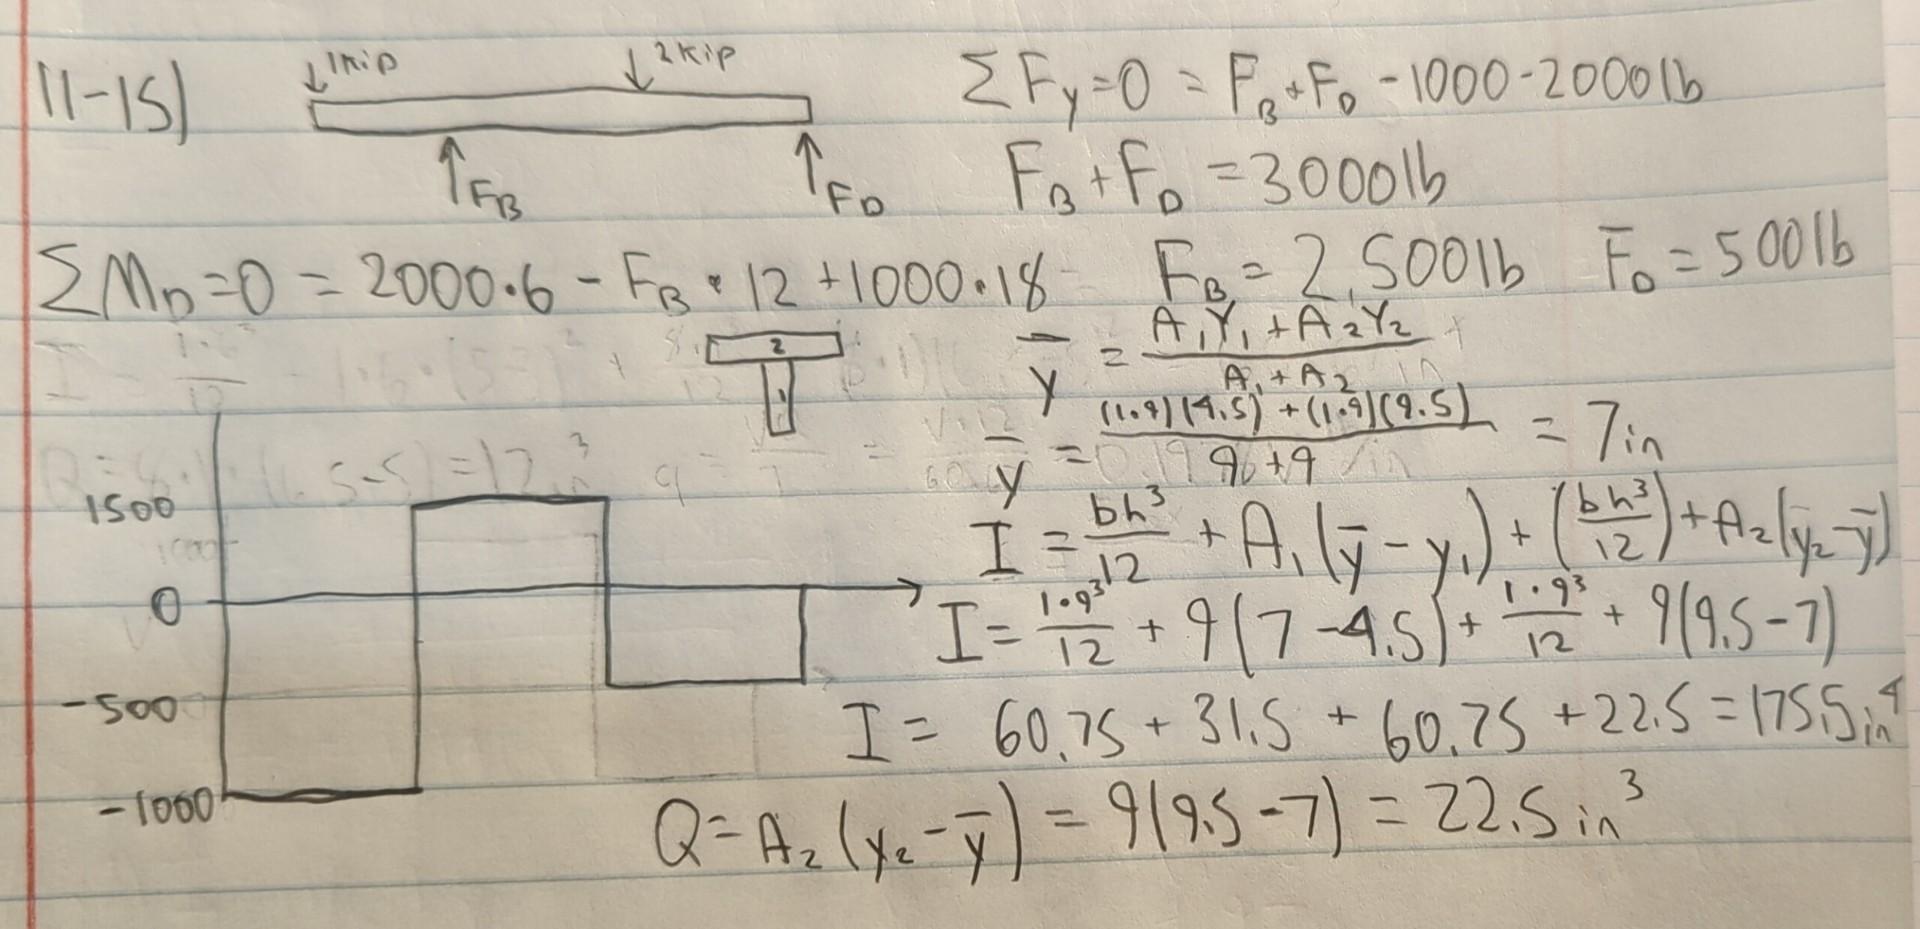 11-15)
1kip
2kip
F_B
F_D
ΣF_y=0 = F_B+F_D -1000-2000lb
F_B+F_D = 3000lb
ΣM_D=0 = 2000·6 - F_B·12 +1000·18
F_B = 2,500lb F_D = 500lb
2
1
y̅ = (A_1Y_1+A_2Y_2)/(A_1+A_2)
y̅ = ((1·9)(4.5)+(1·9)(9.5))/(9+9) = 7in
I = bh³/12 + A_1(y̅-y_1) + (bh³/12) + A_2(y̅_2-y̅)
I = 1·9³/12 + 9(7-4.5) + 1·9³/12 + 9(9.5-7)
I = 60.75 + 31.5 + 60.75 + 22.5 = 175.5in⁴
Q = A_2(y_2-y̅) = 9(9.5-7) = 22.5in³
1500
0
-500
-1000